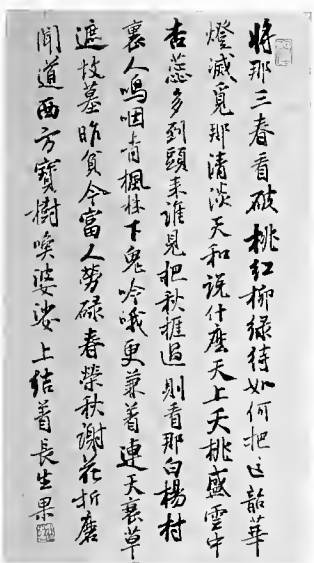 將那三春看破桃紅柳綠待如何把这韶華
燈滅覓那清淡天和説什麽天上夭桃盛雲中
杏蕊多到頭來誰見把秋捱過則看那白楊村
裏人嗚咽青楓林下鬼吟哦更兼着連天衰草
遮坟墓昨貧今富人勞碌春榮秋謝花折磨
聞道西方寶樹喚婆娑上結着長生果